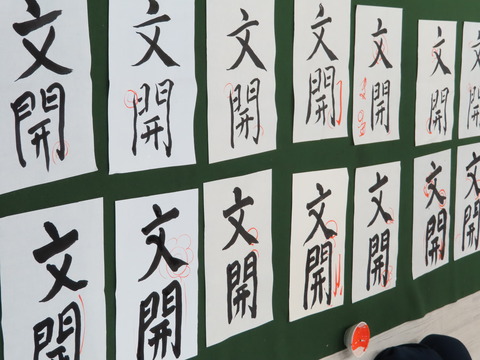 文開
文開
文開
文開
文開
文開
文開
文開
文開
文開
文開
文開
文開
文開